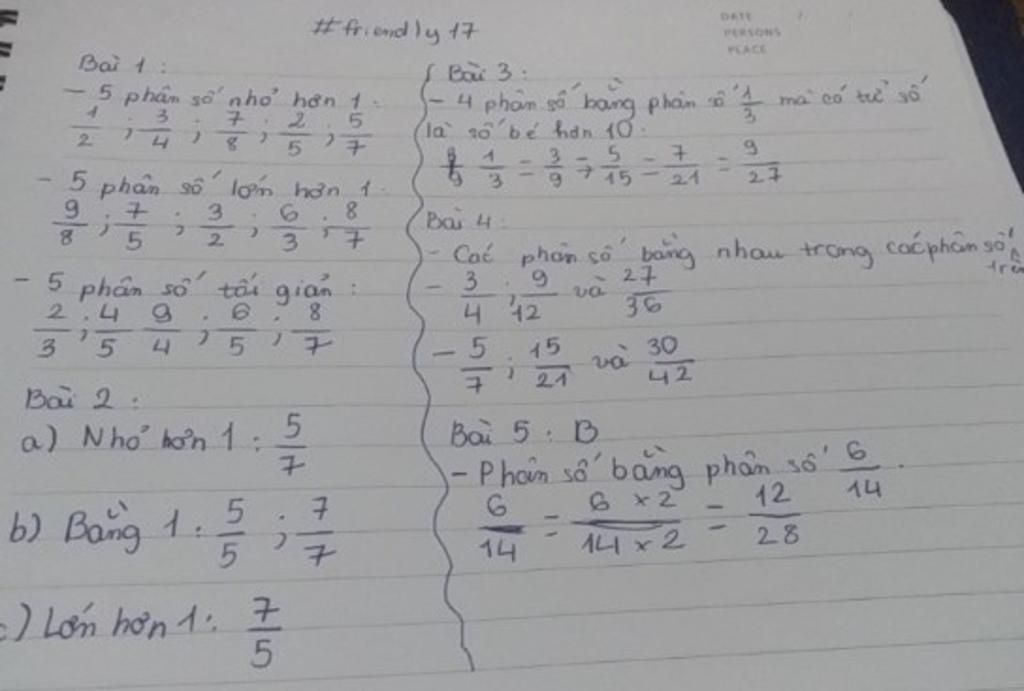 #friendly17
DATE
PERSONS
PLACE
Bài 1:
- 5 phân số nhỏ hơn 1:
1/2 ; 3/4 ; 7/8 ; 2/5 ; 5/7
- 5 phân số lớn hơn 1:
9/8 ; 7/5 ; 3/2 ; 6/3 ; 8/7
- 5 phân số tối giản:
2/3 ; 4/5 9/4 ; 6/5 ; 8/7
Bài 2:
a) Nhỏ hơn 1: 5/7
b) Bằng 1: 5/5 ; 7/7
c) Lớn hơn 1: 7/5
Bài 3:
- 4 phân số bằng phân số 1/3 mà có tử số
là số bé hơn 10:
1/3 = 3/9 = 5/15 = 7/21 = 9/27
Bài 4:
- Các phân số bằng nhau trong các phân số trên
- 3/4 ; 9/12 và 27/36
- 5/7 ; 15/21 và 30/42
Bài 5: B
- Phân số bằng phân số 6/14.
6/14 = 6 x 2/14 x 2 = 12/28